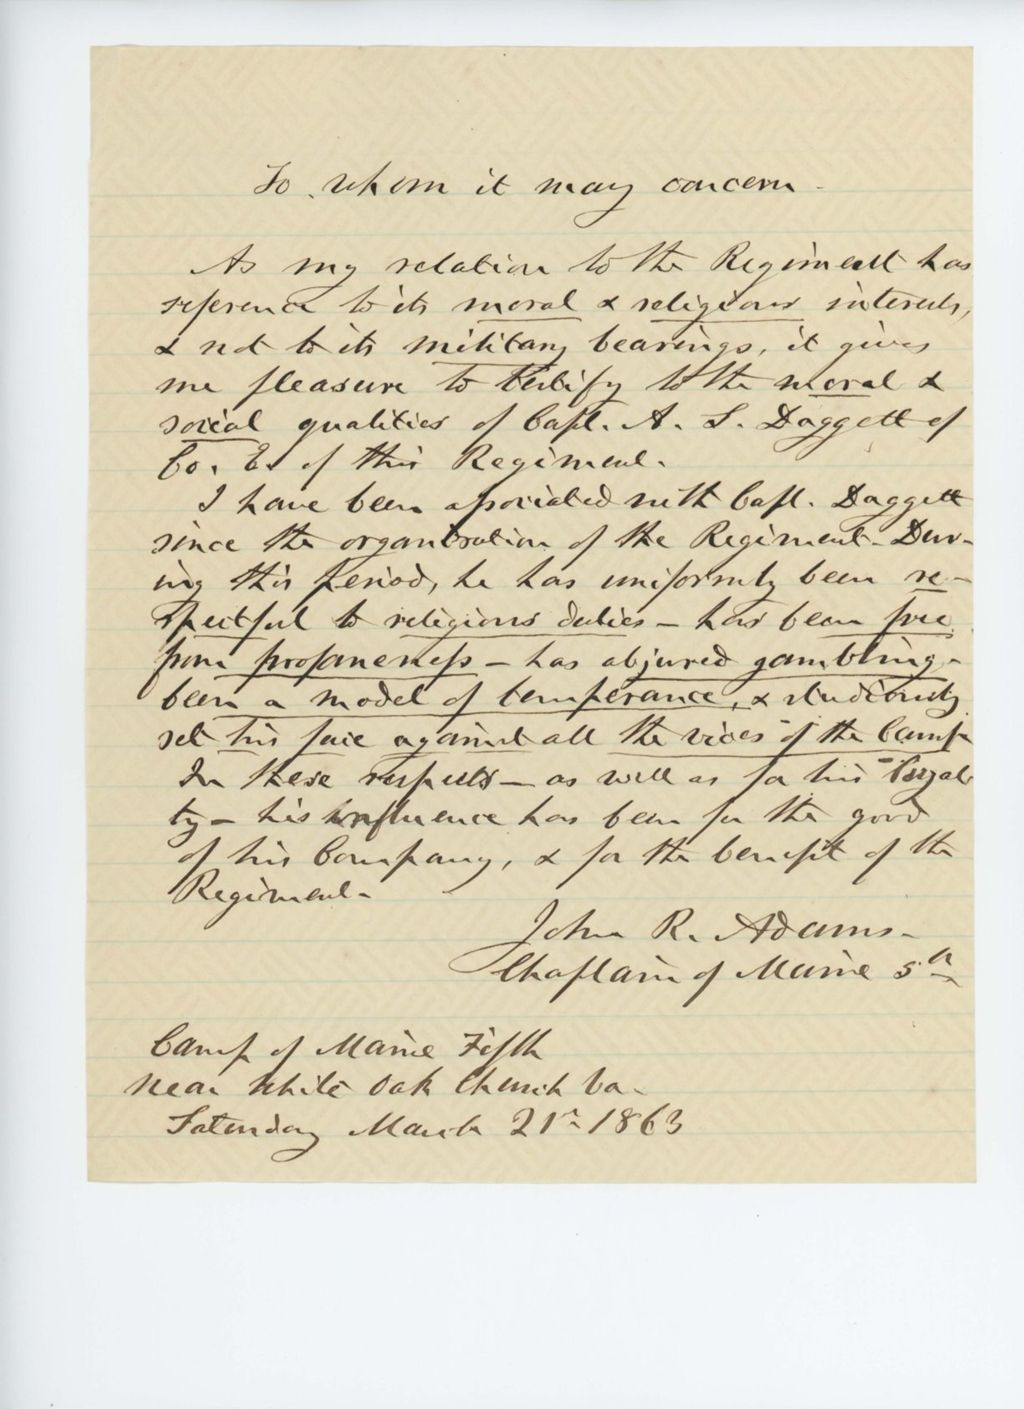 To whom it may concern -
As my relation to the Regiment has
reference to its moral & religious interests,
& not to its military bearings, it gives
me pleasure to testify to the moral &
social qualities of Capt. A. S. Daggett of
Co. E. of this Regiment.
I have been associated with Capt. Daggett
since the organization of the Regiment. Dur-
ing this period, he has uniformly been re-
spectful to religious duties - has been free
from profaneness - has abjured gambling -
been a model of temperance, & studiously
set his face against all the vices of the Camp
In these respects - as well as for his loyal
ty - his influence has been for the good
of his Company, & for the benefit of the
Regiment -
John R. Adams -
Chaplain of Maine 5th
Camp of Maine Fifth
near White Oak Church Va.
Saturday March 21st 1863